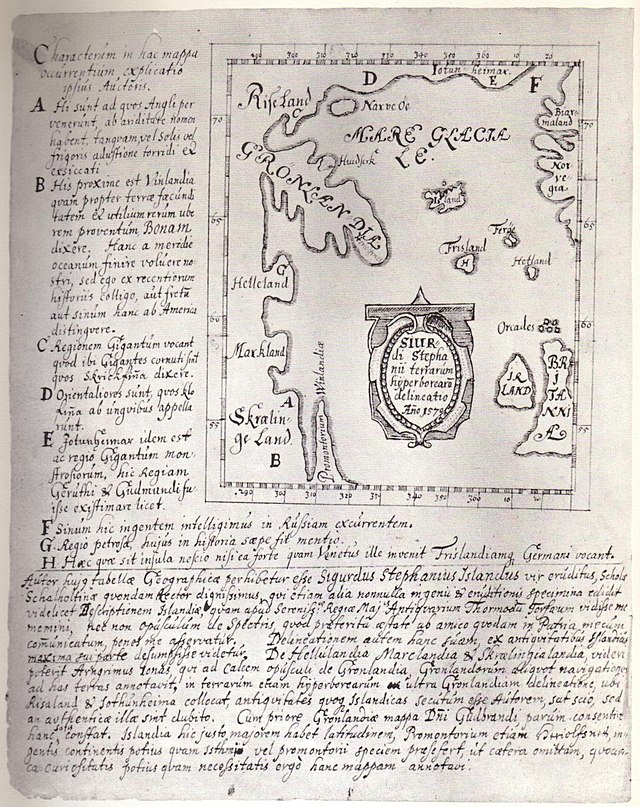 Characterum in hac mappa
occurrentium explicatio
ipsius Auctoris.
A Hi sunt ad quos Angli per
venerunt, ab ariditate nomen
habent, tanquam vel Solis vel
frigoris adustione torridi et
exsiccati
B His proxime est Vinlandia
quam propter terræ fæcundi
tatem et utilium rerum ube
rem proventum Bonam
dixere. Hanc a meridie
oceanum finire voluere no
stri, sed ego ex recentiorum
historiis colligo, aut fretū
aut sinum hanc ab America
distinguere.
C Regionem Gigantum vocant
quod ibi Gigantes cornuti sint
quos Skrickfinna dixere.
D Orientaliores sunt, quos klo
fiña ab unguibus appella
runt.
E Jotunheimar idem est
ac regio Gigantum mon
strosorum, hic Regiam
Geruthi & Gudmundi fu
isse existimare licet.
F Sinum hic ingentem intelligimus in Russiam excurrentem.
G Regio petrosa, hujus in historia sæpe fit mentio.
H Hæc quæ sit insula nescio nisi ea forte quam Venetus ille invenit Frislandiamq Germani vocant.
290 300 310 320 330 340 350
D Jotunheimar E F
Riseland
C
Narve Oe
MARE GLACIA
LE.
Huidserk
GRONLANDIA
Biar-
maland
Nor
vegia
70
65
60
55
Island
Feröe
Frisland
H
Hetland
G
Helleland
Orcades
Markland
A
Skraling-
ge Land
B
Promontorium Winlandiæ
SIUR
di Stepha
nii terrarum
hyperborearū
delineatio
Año 1570
IR
LAND
BRI
TAN
NI
Æ
290 300 310 320 330 340 350
Autor hujg tabellæ Geographicæ perhibetur esse Sigurdus Stephanius Islandus vir eruditus, Scholæ
Schalholtinæ quondam Rector dignissimus, qui etiam alia nonnulla ingenii & eruditionis specimina edidit
videlicet Descriptionem Islandiæ quam apud Sereniss. Regiæ Maj. Antiquarium Thormodū Torfæum vidisse me
memini, nec non opusculum de Spectris, quod præterita ætate ab amico quodam in Patria mecum
comunicatum, penes me asservatur. Delineationem autem hanc suam, ex antiquitatibus Islandicis
maxima sui parte desumpsisse videtur. De Hellulandia Marclandia & Skralinghialandia, videri
poterit Arngrimus Jonas qui ad calcem opusculi de Gronlandia, Gronlandorum aliquot navigationes
ad has terras annotavit, in terrarum etiam hyperborearum ultra Gronlandiam delineatione, ubi
Risaland & Jothunheima collocat, antiquitates quoq Islandicas secutum esse Autorem, sat scio, sed
an authenticæ illæ sint dubito. Cum priore Gronlandiæ mappa Dñi Gudbrandi parum consentire
hanc constat. Islandia hic justo majorem habet latitudinem, Promontorium etiam Heriolfsnes in
gentis continentis potius quam Isthmi vel promontorii speciem præsefert, ut cætera omittam,
ea curiositatis potius quam necessitatis ergò hanc mappam annotavi.